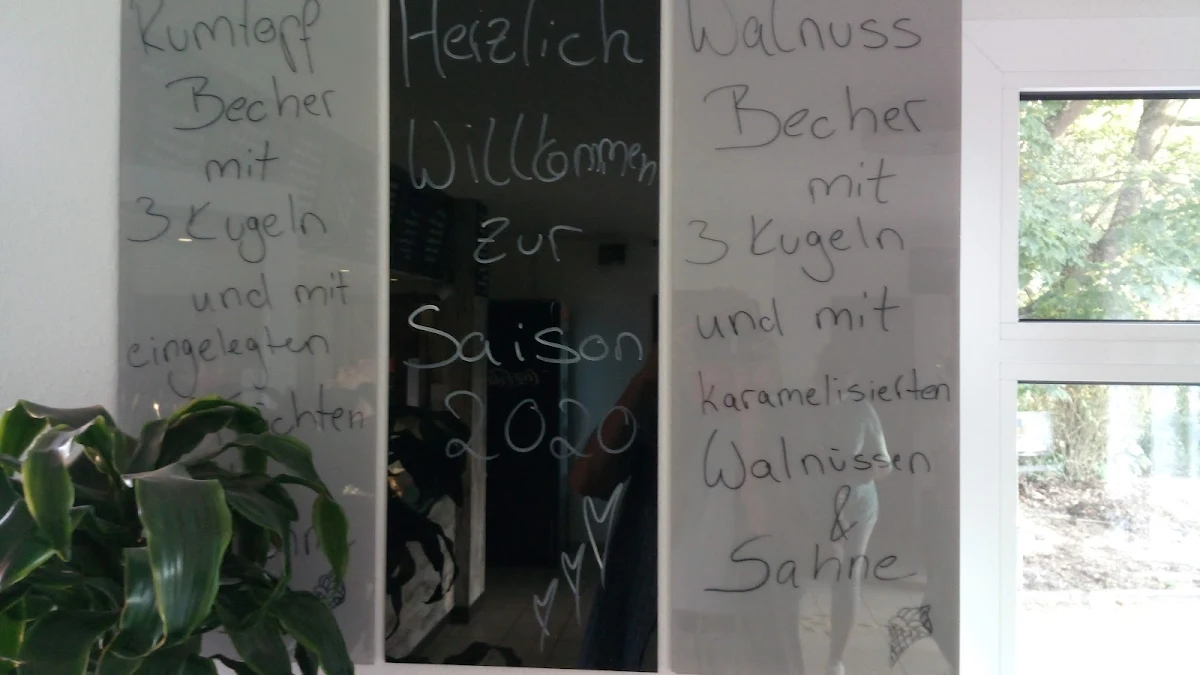 Rumtopf
Becher
mit
3 Kugeln
und mit
eingelegten
Herzlich
Willkommen
zur
Saison
2020
Walnuss
Becher
mit
3 Kugeln
und mit
karamelisierten
Walnüssen
&
Sahne